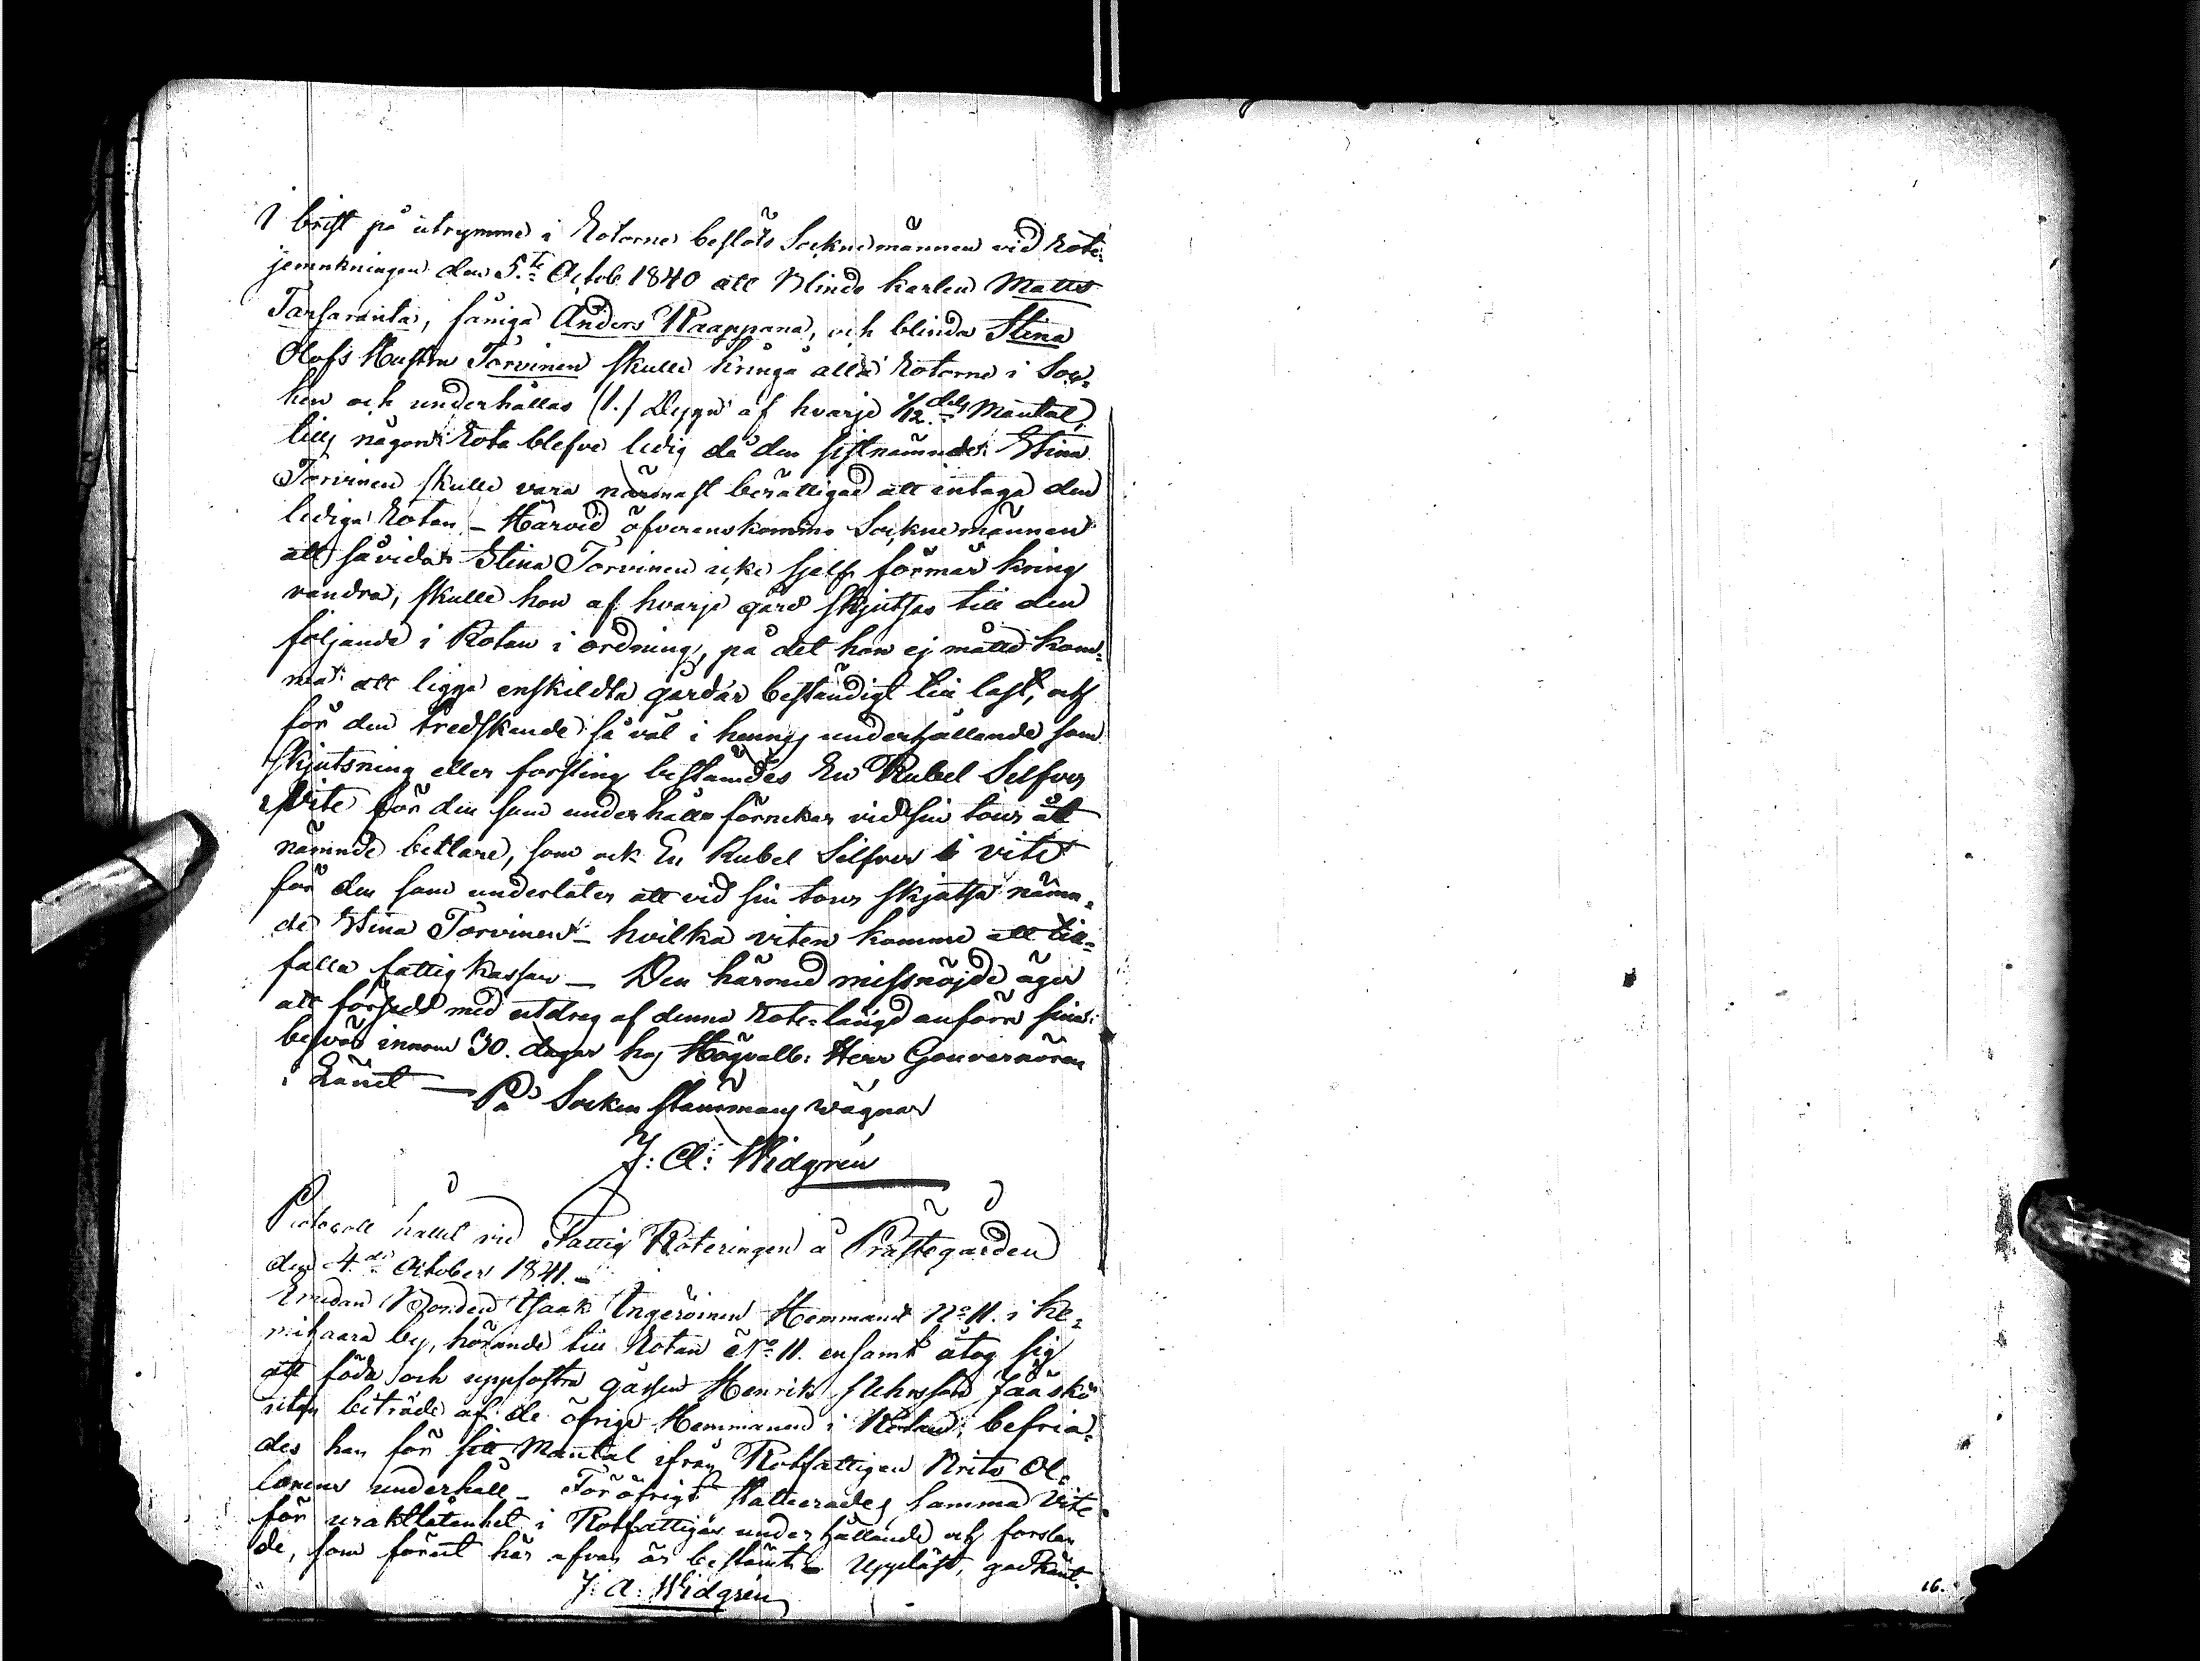 I brist på utrymme i Rotorne beslöts Sockne männen vid Rote-
jemnkningen den 5.te Octob. 1840 att Blinda karlen Matts
Tarsaranta, fåniga Anders Kaappana, och blinda Stina
Olofs Hustru Torvinen skulle kringå alla Rotorne i Soc-
ken och underhållas (1.) Dygn af hvarje 1/12.dels Mantal,
tills någon Rota blefve ledig då den sistnämnde Stina
Torvinen skulle vara närmast berättigad att intaga den
lediga Rotan – Härvid öfverenskommo Socknemännen
att såvida Stina Torvinen icke sjelf förmår kring
vandra, skulle hon af hvarje gård skjutsas till den
följande i Rotan i ordning, på det hon ej måtte kom-
ma att ligga enskildta gårdar beständigt till last, och
för den tredskande så väl i hennes underhållande som
skjutsning eller forsling bestämdes En Rubel Silfver
i Vite för den som underhåll förnekar vid sin tour åt
nämnde betlare, som ock En Rubel Silfver i vite
för den som underlåter att vid sin tour skjutsa nämn-
de Stina Torvinen – hvilka viten komma att till-
falla fattigkassan – Den härmed missnöjde äger
att försedd med utdrag af denna Rote-längd anföra sina
besvär innom 30. dagar hos Högvälb: Herr Gouvernören
i Länet — På Socken Stämmans vägnar
J: A: Widgrén
Protocoll hållit vid Fattig Roteringen å Prästegården
den 4.de October 1841. –
Emedan Bonden Isaak Ingeroinen Hemmanet No 11. i Ke-
mihaara by, hörande till Rotan No 11. ensamt åtog sig
att föda och uppfostra gåssen Henrik Jääskö
utan biträde af de öfriga Hemmanen i Rotan, befria-
des han för sitt Mantal ifrån Rotfattigen Brita Ol-
larens underhåll – För öfrigt stadgades samma Vite
för uraktlåtenhet i Rotfattigas underhållande och forslan-
de, som förut här ofvan är bestämt – Uppläst, godkänt.
J: A: Widgrén
16.